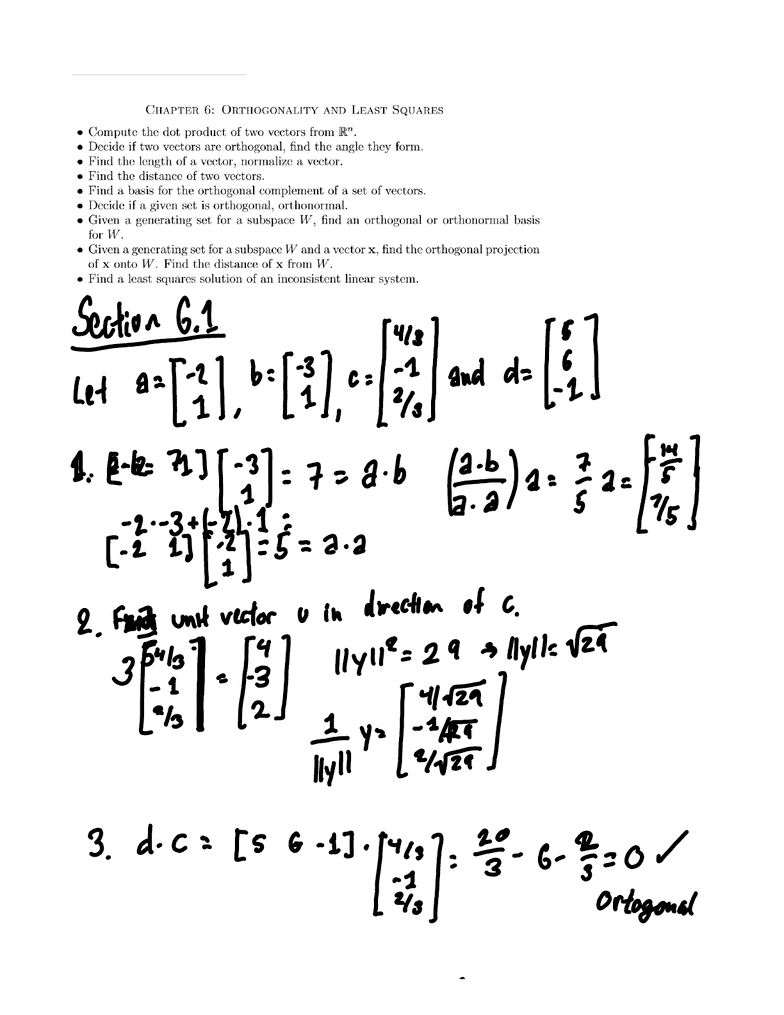 CHAPTER 6: ORTHOGONALITY AND LEAST SQUARES
• Compute the dot product of two vectors from ℝⁿ.
• Decide if two vectors are orthogonal, find the angle they form.
• Find the length of a vector, normalize a vector.
• Find the distance of two vectors.
• Find a basis for the orthogonal complement of a set of vectors.
• Decide if a given set is orthogonal, orthonormal.
• Given a generating set for a subspace W, find an orthogonal or orthonormal basis
for W.
• Given a generating set for a subspace W and a vector x, find the orthogonal projection
of x onto W. Find the distance of x from W.
• Find a least squares solution of an inconsistent linear system.
Section 6.1
Let a = [-2 1], b = [-3 1], c = [4/3 -1 2/3] and d = [5 6 -1]
1. [-3 1] = 7 = a·b (a·b/a·a) a = 7/5 a = [-14/5 7/5]
-2·-3+(-2)·1 =
[-2 1] [-2 1] = 5 = a·a
2. unit vector u in direction of c.
3 [4/3 -1 2/3] = [4 -3 2] ||y||² = 29 → ||y|| = √29
1/||y|| y = [4/√29 -1/√29 2/√29]
3. d·c = [5 6 -1]·[4/3 -1 2/3] = 20/3 - 6 - 2/3 = 0 ✓
Ortogonal